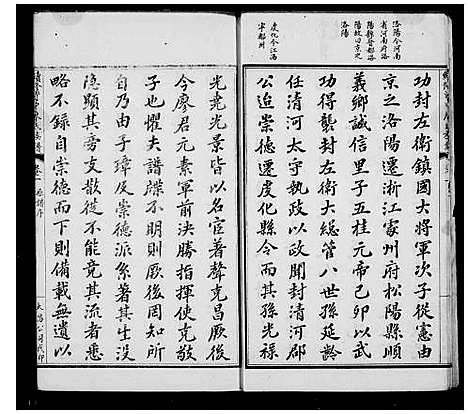 洛陽今河南
省河南府洛
陽縣晉都洛
陽故曰京之
洛陽
虔化今江西
寧都州
功封左衛鎮國大將軍次子從憲由
京之洛陽遷浙江處州府松陽縣順
義鄉誠信里子五桂元帝己卯以武
功得襲封左衛大總管八世孫延齡
任清河太守執政以政聞封清河郡
公迨崇德遷虔化縣令而其孫光祿
光堯光景皆以名宦著聲克昌厥後
今廖君元素軍前決勝指揮使克敬
子也懼夫譜牒不明則厥後罔知所
自乃由子璋及崇德派系著其生沒
隱顯其旁支散從不能竟其流者悉
略不錄自崇德而下則備載無遺以